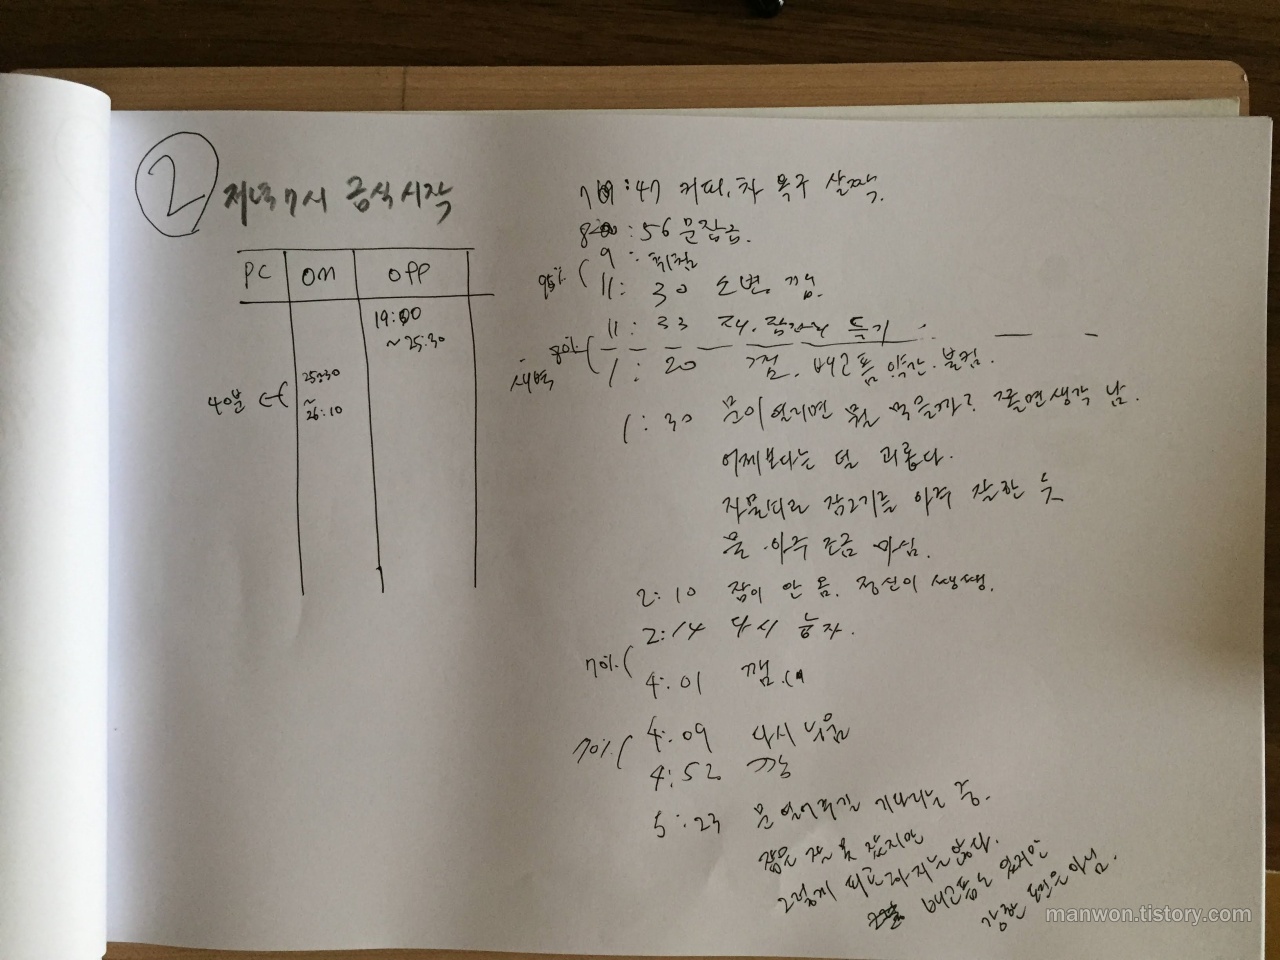 2
저녁7시 금식시작
PC on off
19:00
~25:30
25:30
~
26:10
40분
7:47 커피, 차 욕구 살짝.
8:56 문잠금.
9: 취침
95%
11:30 소변. 깸.
11:33 잠자리 들기
80%
새벽 1:20 깸. 배고픔 약간. 불켬.
1:30 문이 열리면 뭘 먹을까? 쫄면생각 남.
어제보다는 덜 괴롭다.
자물쇠로 잠그기를 아주 잘한 듯
물 아주 조금 마심.
2:10 잠이 안 옴. 정신이 쌩쌩.
2:14 다시 눕자.
70%
4:01 깸.
70%
4:09 다시 누움
4:52 깸
5:23 문 열어주길 기다리는 중.
잠은 잘 못 잤지만
그렇게 피곤하지는 않다.
배고픔도 있지만
강한 편은 아님.
manwon.tistory.com